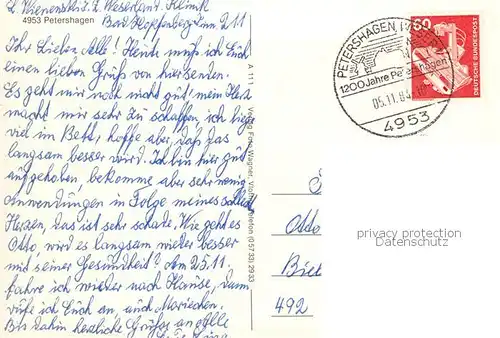 Weserland. Klinik
4953 Petershagen
Bad Hopfenberg Zimm 211
Ihr Lieben Alle! Heute muß ich Euch
einen lieben Gruß von hier senden.
Es geht mir noch nicht gut! mein Herz
macht mir sehr zu schaffen ich liege
viel im Bett, hoffe aber, daß das
langsam besser wird. Ich bin hier gut
aufgehoben bekomme aber sehr wenig
Anwendungen in Folge meines schlecht
Herzen, das ist sehr schade. Wie geht es
Otto, wird es langsam wieder besser
mit seiner Gesundheit? Am 25.11.
fahre ich wieder nach Hause, dann
rufe ich Euch an, auch Mariechen.
Bis dahin herzliche Grüße an Alle
A 111 Verlag Foto-Wagner, Vlotho, Telefon (05733) 2933
PETERSHAGEN, WESER 1
1200 Jahre Petershagen
05.11.84
4953
60
DEUTSCHE BUNDESPOST
Otto
492
privacy protection
Datenschutz